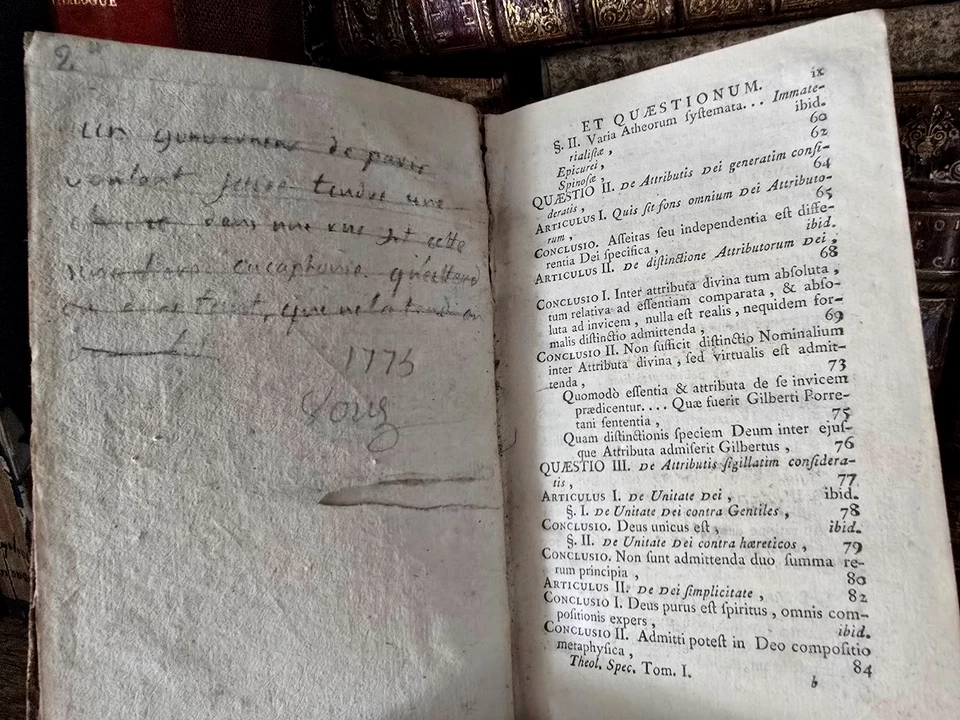 un gouverneur de paris
voulant tendre une
dans une rue et cette
cacaphonie
1775
ix
ET QUÆSTIONUM.
§. II. Varia Atheorum ſyſtemata... Immate-
rialiſtæ , ibid.
Epicurei, 60
Spinoſæ , 62
QUÆSTIO II. De Attributis Dei generatim conſi-
deratis , 64
ARTICULUS I. Quis ſit fons omnium Dei Attributo-
rum , 65
CONCLUSIO. Aſſeitas ſeu independentia eſt diffe-
rentia Dei ſpecifica , ibid.
ARTICULUS II. De diſtinctione Attributorum Dei ,
68
CONCLUSIO I. Inter attributa divina tum abſoluta ,
tum relativa ad eſſentiam comparata , & abſo-
luta ad invicem , nulla eſt realis , nequidem for-
malis diſtinctio admittenda , 69
CONCLUSIO II. Non ſufficit diſtinctio Nominalium
inter Attributa divina , ſed virtualis eſt admit-
tenda , 73
Quomodò eſſentia & attributa de ſe invicem
prædicentur.... Quæ fuerit Gilberti Porre-
tani ſententia , 75
Quam diſtinctionis ſpeciem Deum inter ejuſ-
que Attributa admiſerit Gilbertus , 76
QUÆSTIO III. De Attributis ſigillatim conſidera-
tis , 77
ARTICULUS I. De Unitate Dei , ibid.
§. I. De Unitate Dei contra Gentiles , 78
CONCLUSIO. Deus unicus eſt , ibid.
§. II. De Unitate Dei contra hæreticos , 79
CONCLUSIO. Non ſunt admittenda duo ſumma re-
rum principia , 80
ARTICULUS II. De Dei ſimplicitate , 82
CONCLUSIO I. Deus purus eſt ſpiritus , omnis com-
poſitionis expers , ibid.
CONCLUSIO II. Admitti poteſt in Deo compoſitio
metaphyſica , 84
Theol. Spec. Tom. I. b